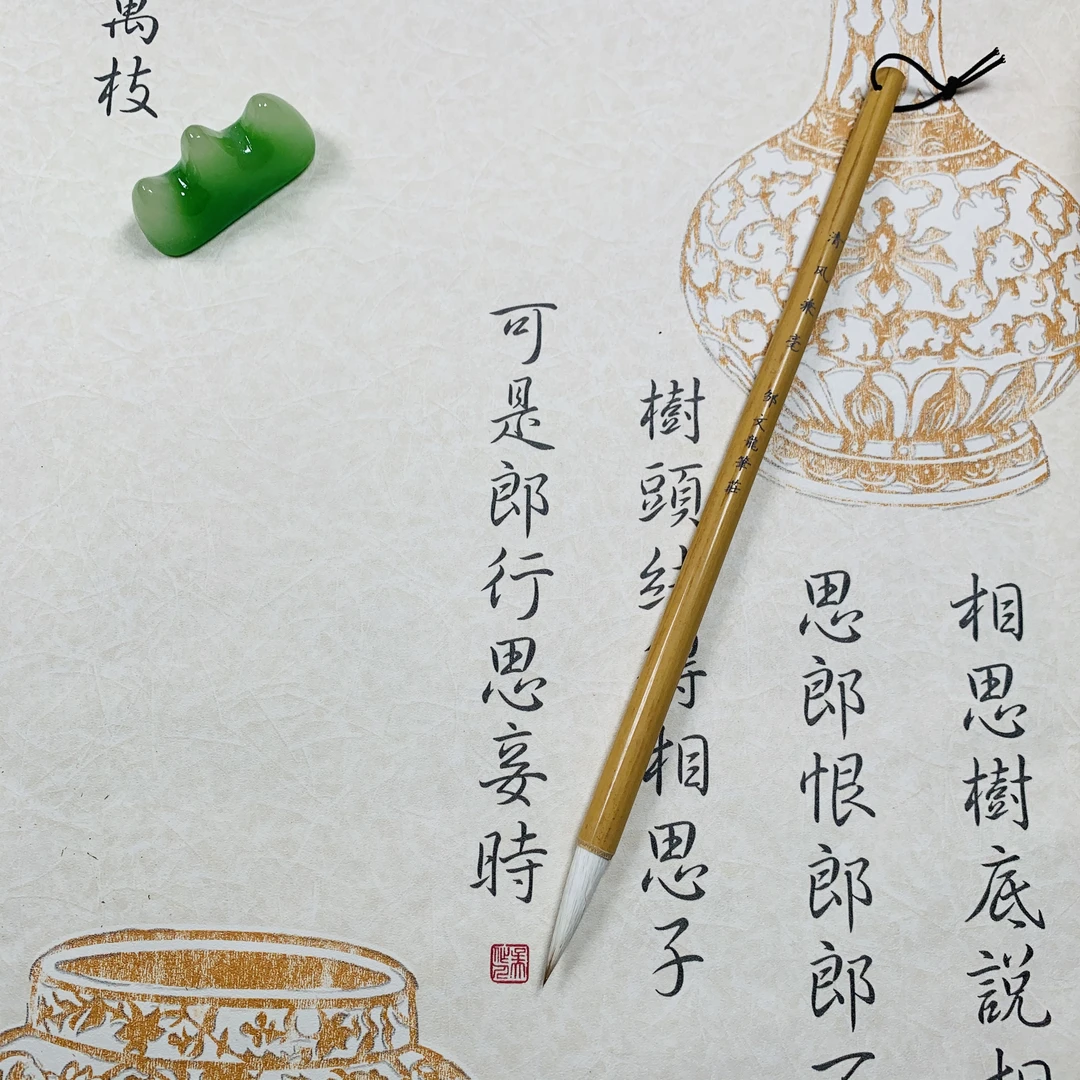 相思樹底說相
思郎恨郎郎不
樹頭結得相思子
可是郎行思妾時
萬枝
清风兼毫
邹文龍筆莊